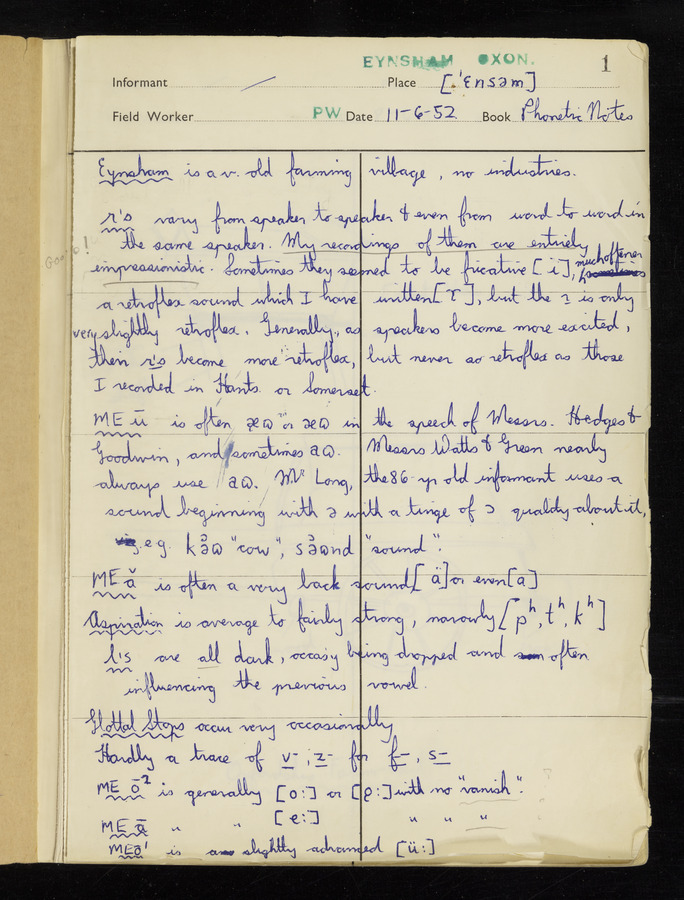 EYNSHAM OXON. 1
Informant Place [ˈɛnsəm]
Field Worker PW Date 11-6-52 Book Phonetic Notes
Eynsham is a v. old farming village, no industries.
r's vary from speaker to speaker & even from word to word in
the same speaker. My recordings of them are entirely
impressionistic. Sometimes they seemed to be fricative [ɹ], much oftener
a retroflex sound which I have written [ɽ], but the r is only
very slightly retroflex. Generally, as speakers become more excited,
their r's become more retroflex, but never so retroflex as those
I recorded in Hants or Somerset.
ME ū is often æɷ or ɛɷ in the speech of Messrs. Hedges &
Goodwin, and sometimes aɷ. Messrs Watts & Green nearly
always use aɷ. Mr Long, the 86-yr old informant uses a
sound beginning with ə with a tinge of ɔ quality about it,
e.g. kə̊ɷ "cow", sə̊ɷnd "sound".
ME ă is often a very back sound [ä] or even [a]
Aspiration is average to fairly strong, narrowly [pʰ, tʰ, kʰ]
l's are all dark, occasy being dropped and often
influencing the previous vowel.
Glottal Stops occur very occasionally
Hardly a trace of v-, z- for f-, s-
ME ō² is generally [o:] or [o̞:] with no "vanish".
ME ā " " [e:] " " "
ME ō¹ is slightly advanced [ü:]